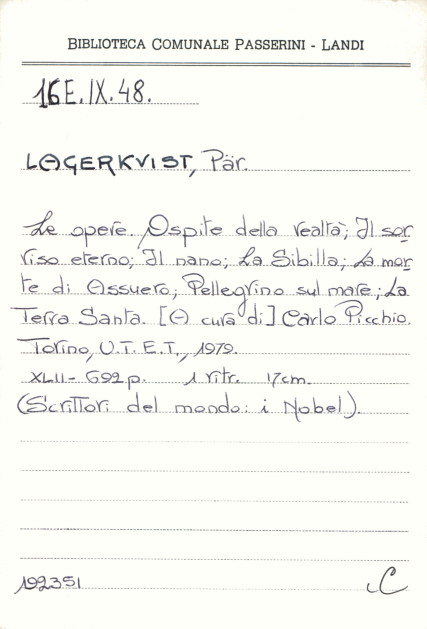 BIBLIOTECA COMUNALE PASSERINI - LANDI
16E.IX.48.
LAGERKVIST, Pär.
Le opere. Ospite della realtà; Il sor
riso eterno; Il nano; La Sibilla; La mor
te di Assuero; Pellegrino sul mare; La
Terra Santa. [A cura di] Carlo Picchio.
Torino, U.T.E.T., 1979.
XLII- 692 p. 1 ritr. 17cm.
(Scrittori del mondo: i Nobel).
192351
C